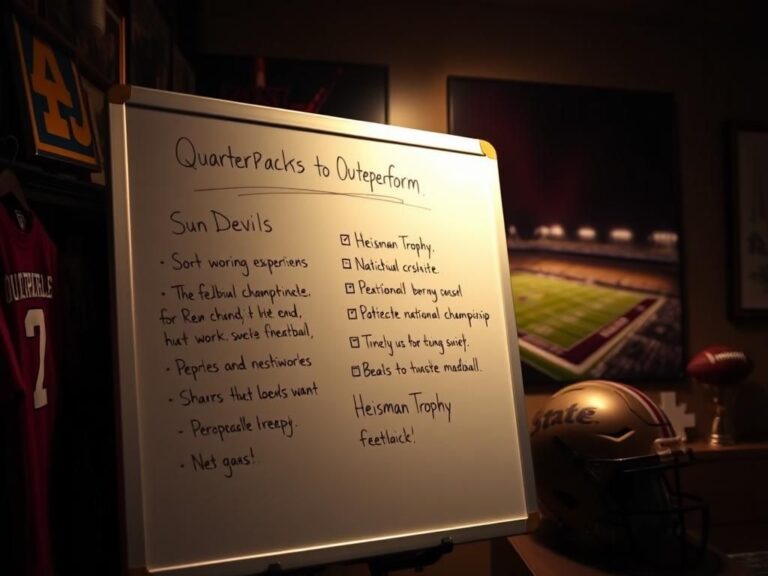 QuarterPacks to Outeperform.
Sun Devils
• Sort woring esperiens
• The felbiul champtincte.
for Ren chund, t lie end,
hut work. sucte fnestball,
• Pepries and nestiworles
• Sharrs that loeds want
- Peropcaslle lreepy.
• Net gans!
Heisman Trophy.
Natictual crslnite.
Pextional berny censel
Potiecte national champiscip
Tinely us for tiung snief.
Beals to twiste madball.
Heisman Trophy
feetlaick!
2
State